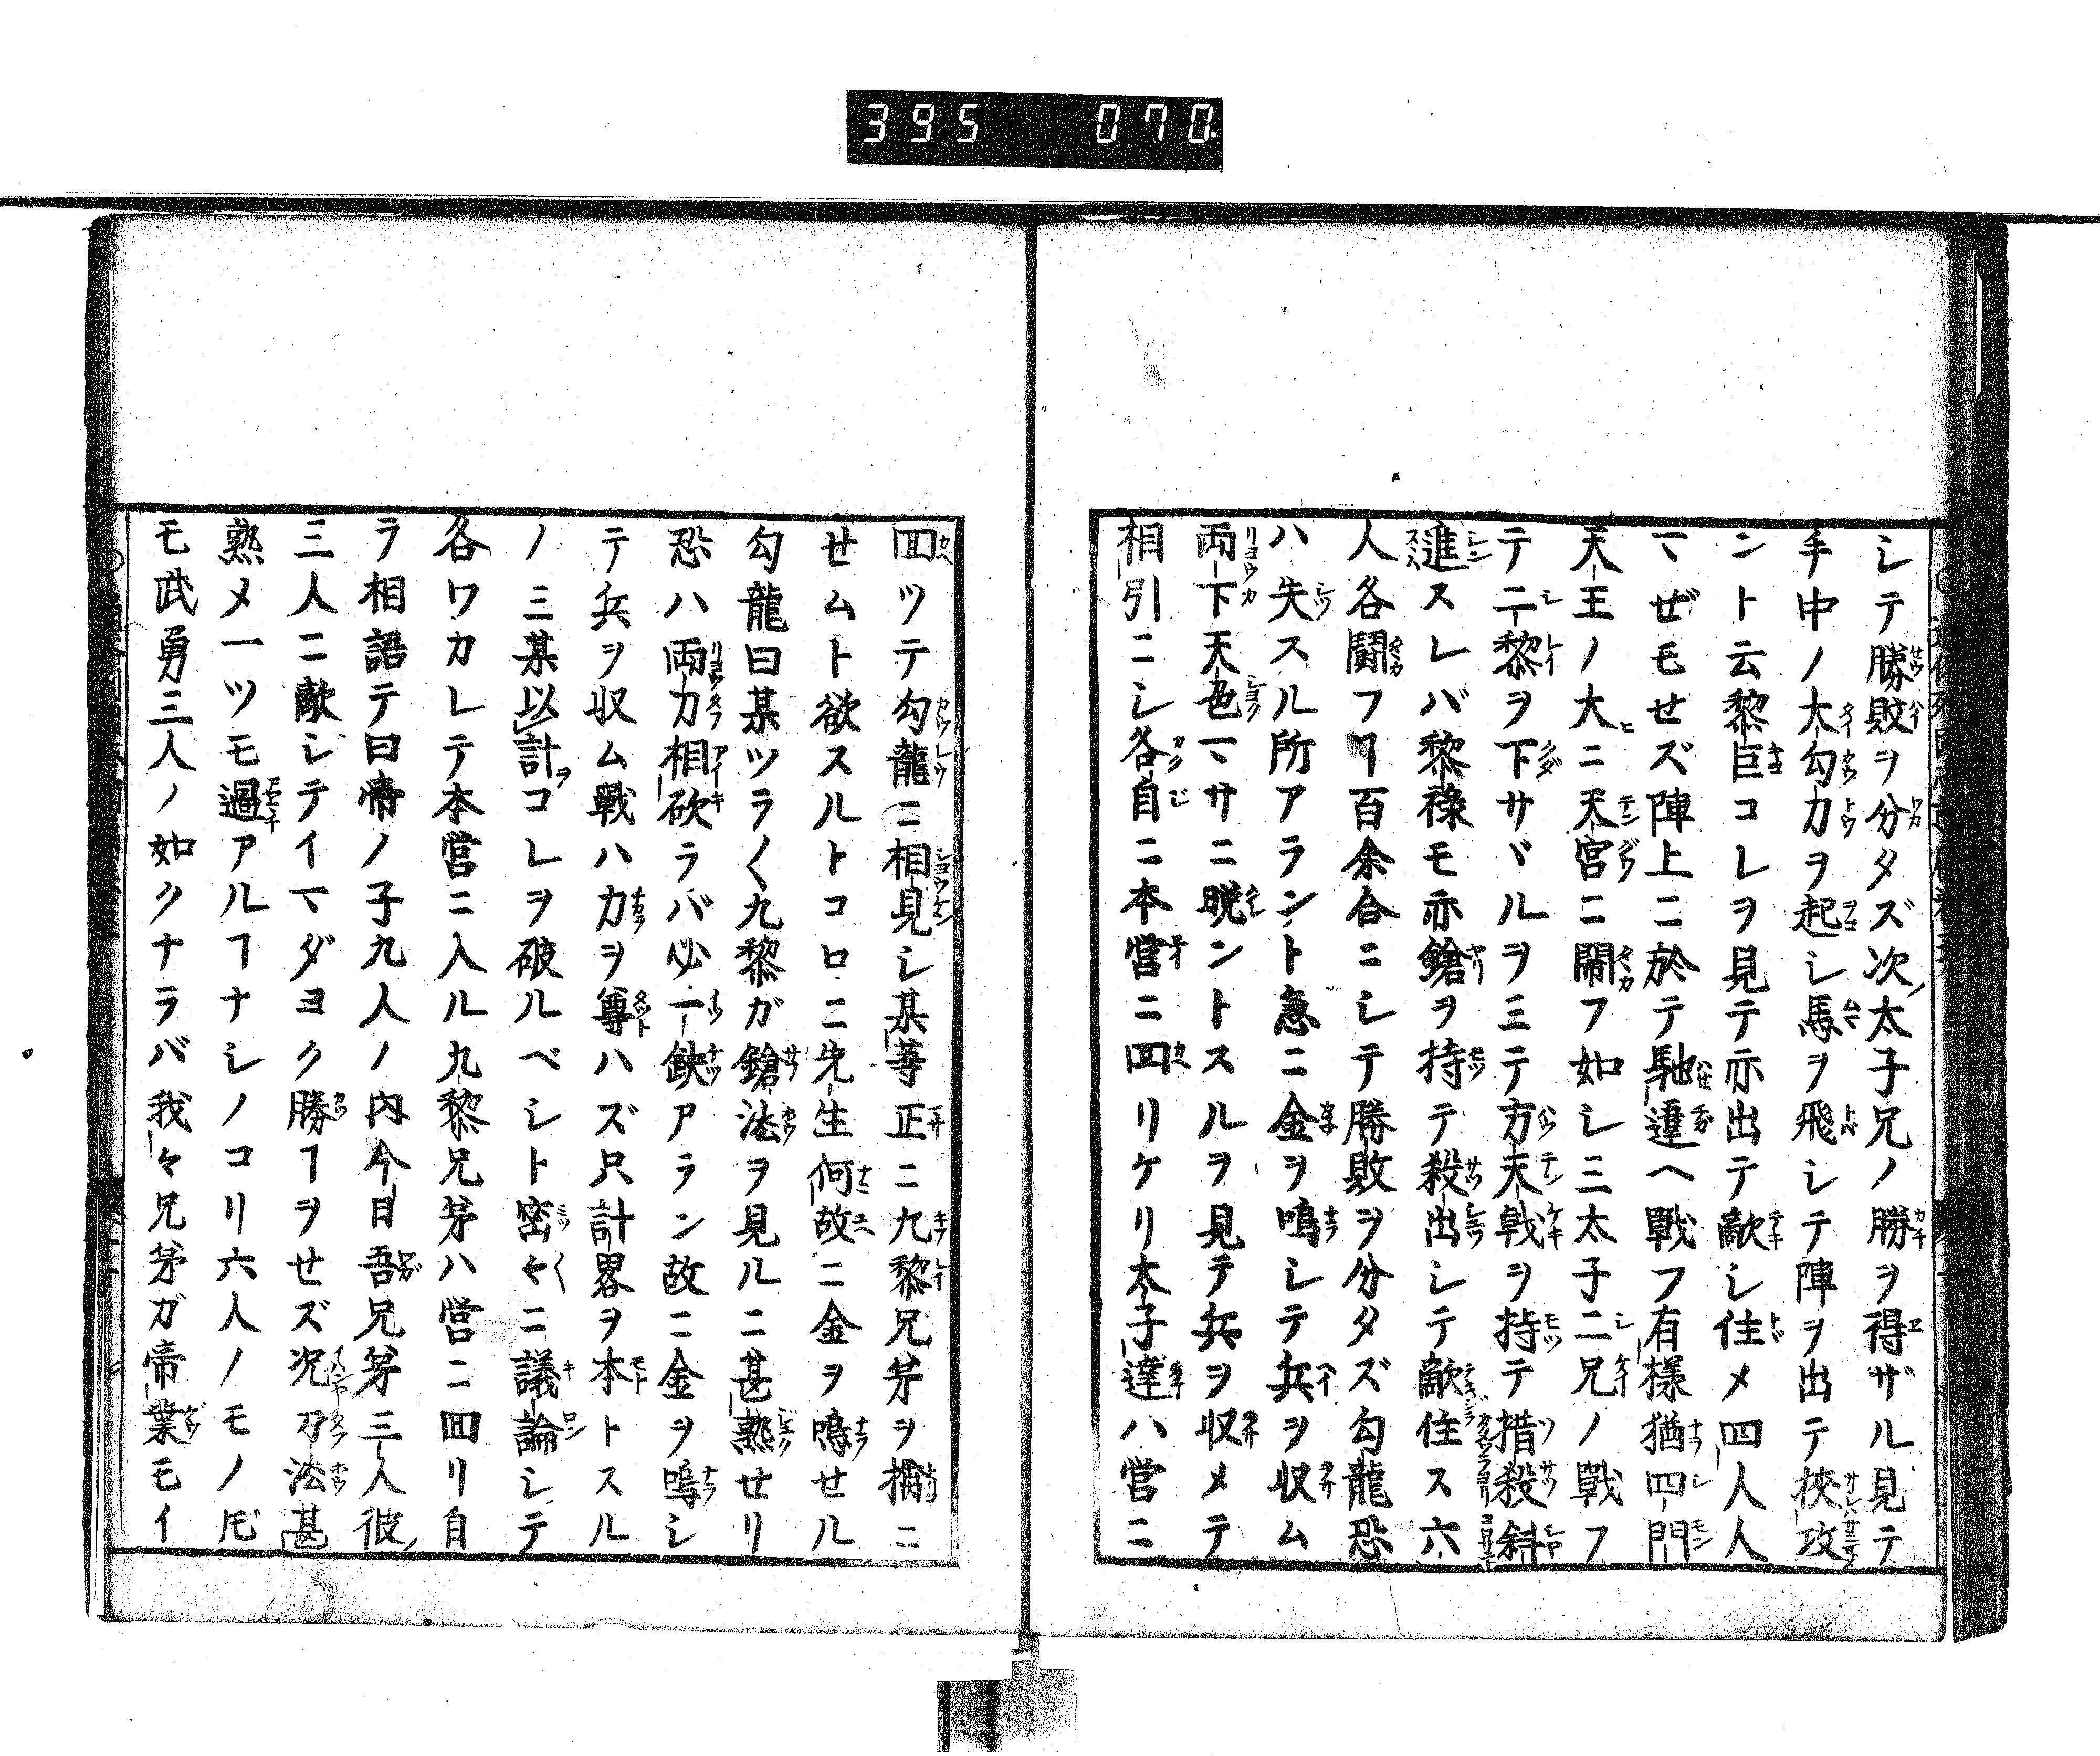 395 070
シテ勝敗ヲ分タズ次太子兄ノ勝ヲ得ザル見テ
手中ノ大勾力ヲ起シ馬ヲ飛シテ陣ヲ出テ挾攻
ント云黎巨コレヲ見テ亦出テ敵シ住メ四人人
マゼモせズ陣上ニ於テ馳違ヘ戰フ有様猶四門
天王ノ大ニ天宮ニ鬧フ如シ三太子二兄ノ戰フ
テ二黎ヲ下サヾルヲ三テ方天戟ヲ持テ措殺斜
進スレバ黎祿モ亦鎗ヲ持テ殺出シテ敵住ス六
人各鬪フヿ百余合ニシテ勝敗ヲ分タズ勾龍恐
ハ失スル所アラント急ニ金ヲ鳴シテ兵ヲ収ム
両下天色マサニ晩ントスルヲ見テ兵ヲ収メテ
相引ニシ各自ニ本営ニ回リケリ太子達ハ営ニ
回ツテ勾龍ニ相見シ某等正ニ九黎兄弟ヲ擒ニ
せムト欲スルトコロニ先生何故ニ金ヲ鳴せル
勾龍曰某ツラ〱九黎ガ鎗法ヲ見ルニ甚熟せリ
恐ハ両力相砍ラバ必一鈌アラン故ニ金ヲ鳴シ
テ兵ヲ収ム戰ハ力ヲ尊ハズ只計畧ヲ本トスル
ノミ某以計コレヲ破ルベシト密々ニ議論シテ
各ワカレテ本営ニ入ル九黎兄弟ハ営ニ回リ自
ラ相語テ曰帝ノ子九人ノ內今日吾兄弟三人彼
三人ニ敵シテイマダヨク勝ヿヲせズ况刀法甚
熟メ一ツモ過アルヿナシノコリ六人ノモノ𪜈
モ武勇三人ノ如クナラバ我々兄弟ガ帝業モイ